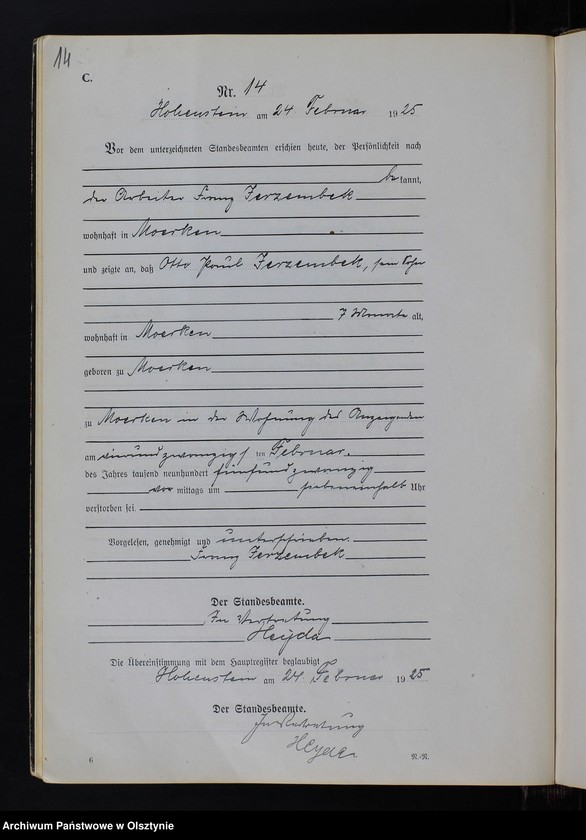 14
C.
Nr. 14
Hohenstein am 24 Februar 1925
Vor dem unterzeichneten Standesbeamten erschien heute, der Persönlichkeit nach
be kannt,
der Arbeiter Franz Jerzembek
wohnhaft in Moerken
und zeigte an, daß Otto Paul Jerzembek, sein Sohn
7 Monate alt,
wohnhaft in Moerken
geboren zu Moerken
zu Moerken in der Wohnung des Anzeigenden
am einundzwanzigsten Februar
des Jahres tausend neunhundert fünfundzwanzig
vor mittags um siebeneinhalb Uhr
verstorben sei.
Vorgelesen, genehmigt und unterschrieben.
Franz Jerzembek
Der Standesbeamte.
In Vertretung
Heyda
Die Übereinstimmung mit dem Hauptregister beglaubigt
Hohenstein am 24. Februar 1925
Der Standesbeamte.
In Vertretung
Heyda
6 N.-N.
Archiwum Państwowe w Olsztynie